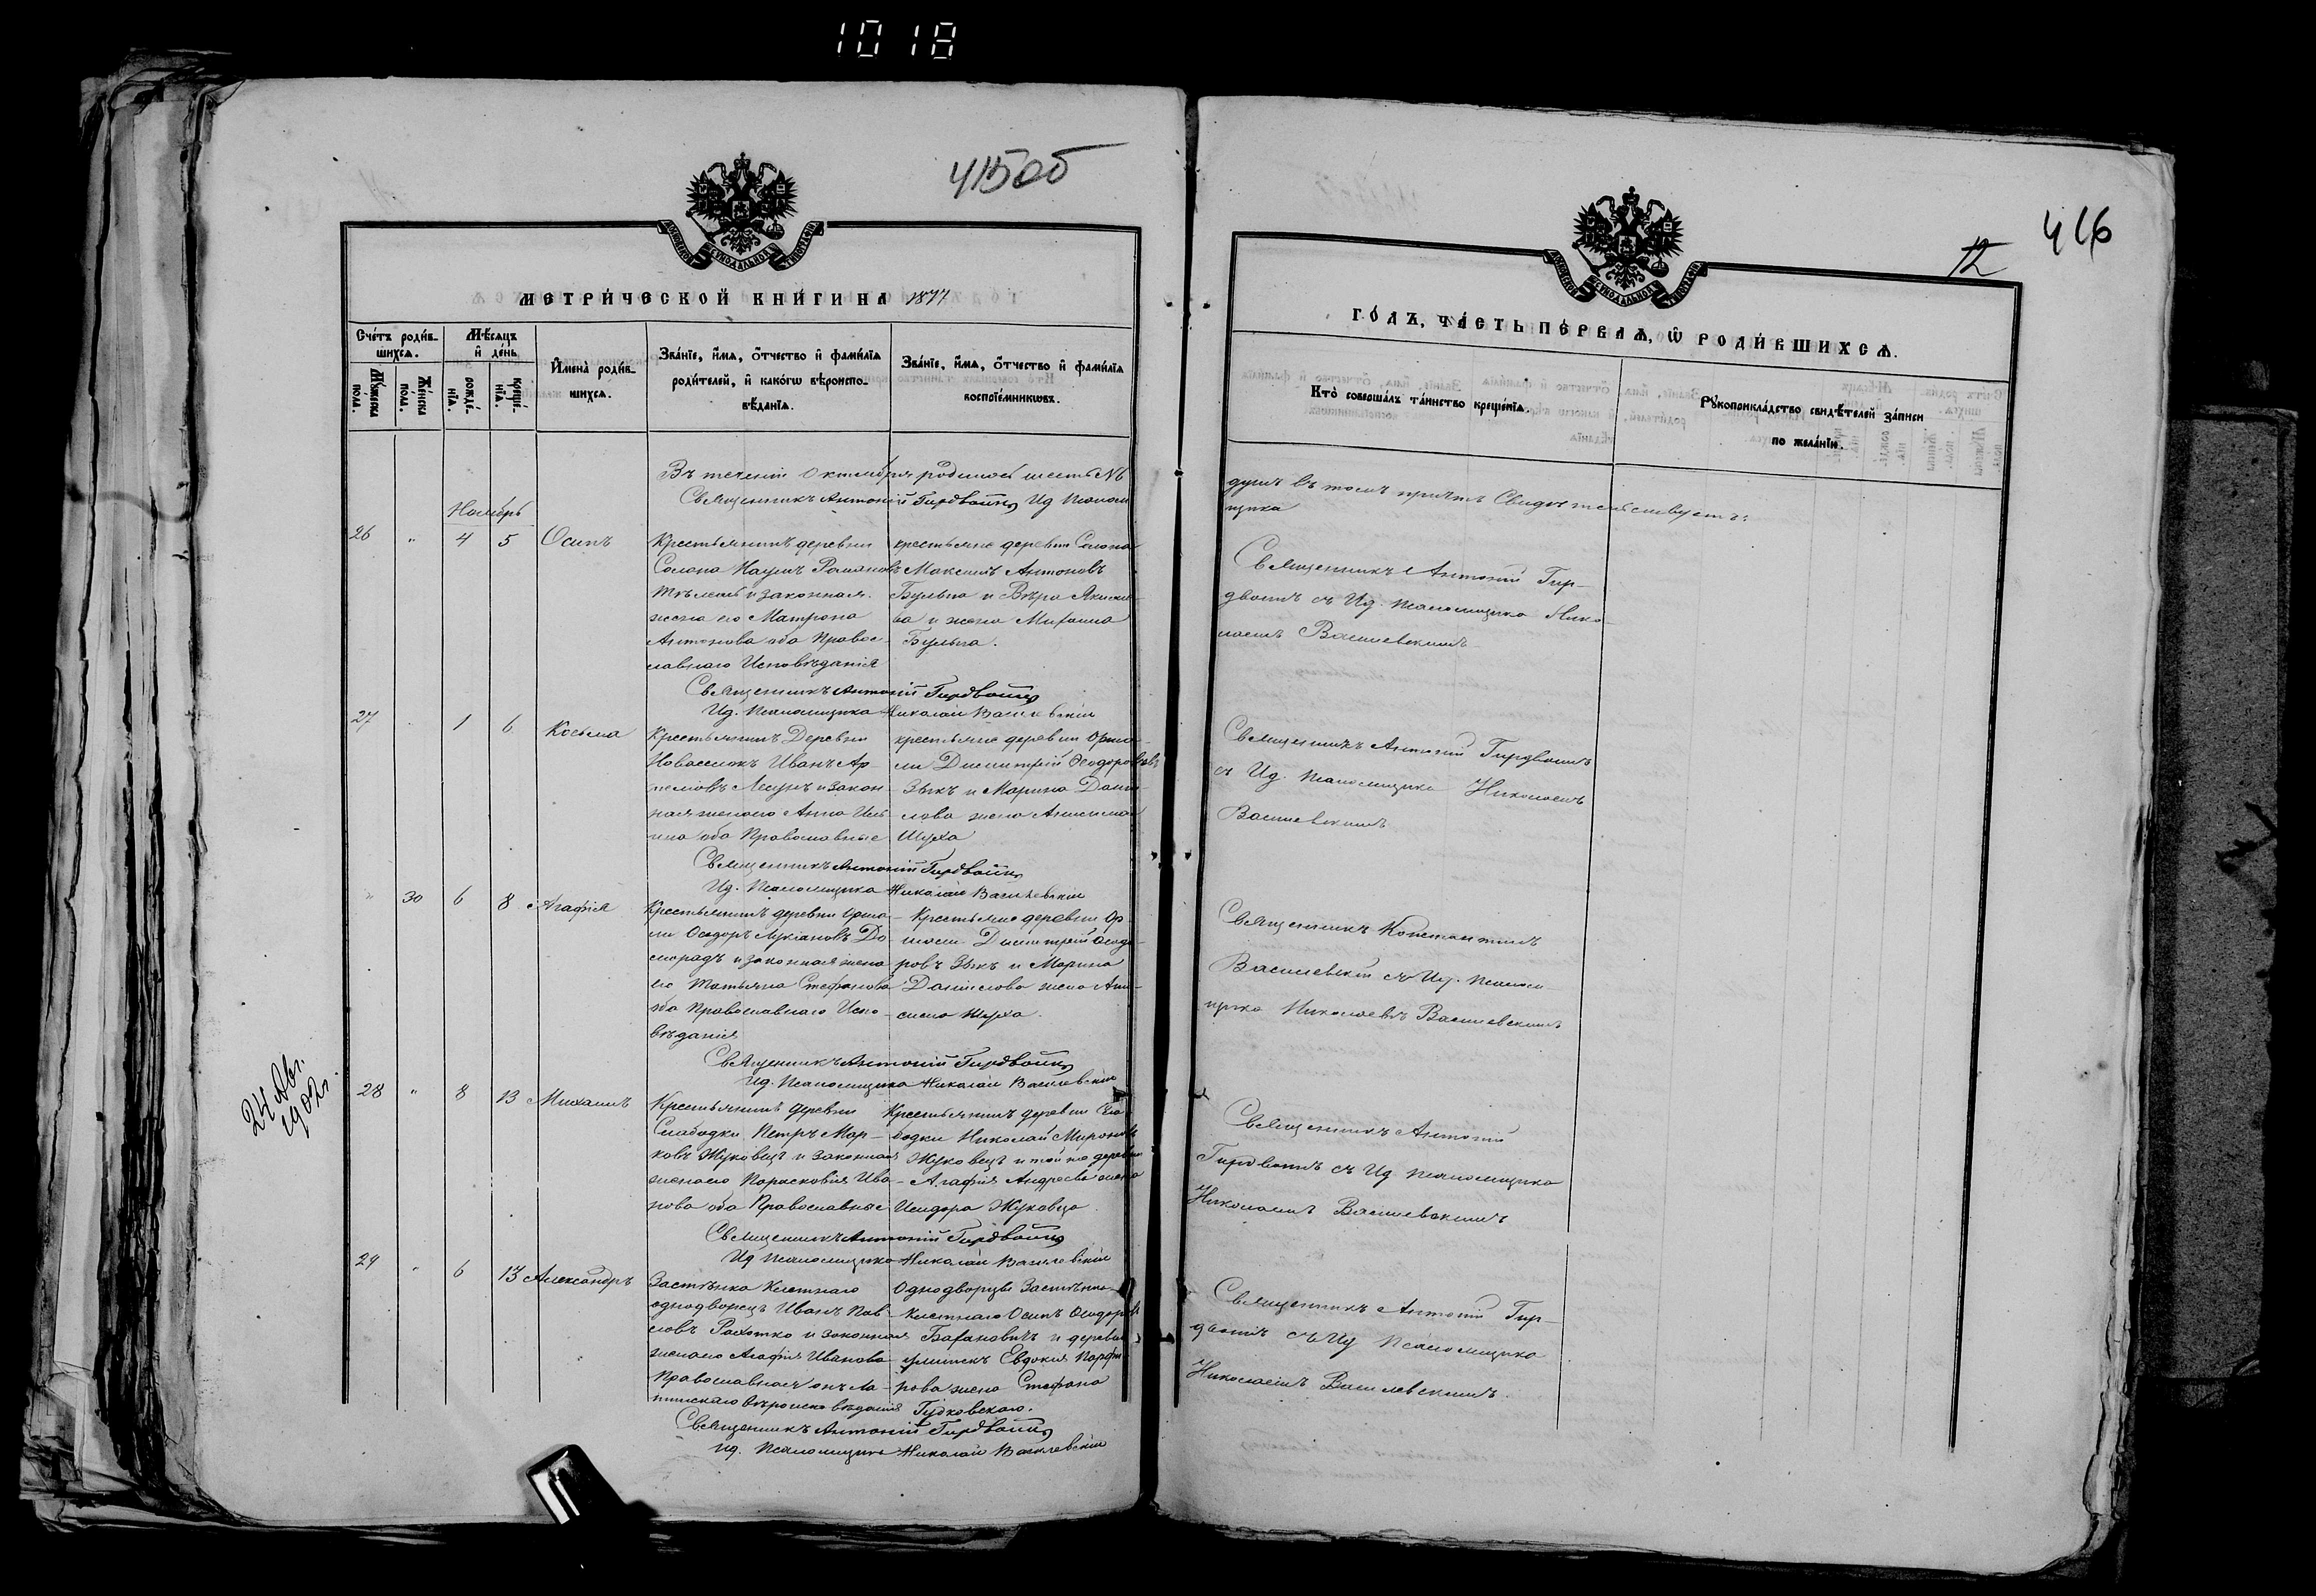 1018
415об
416
12
МОСКОВСКОЙ СѴНОДАЛЬНОЙ ТИПОГРАФІИ
МЕТРИ́ЧЕСКОЙ КНИ́ГИ НА 1877
Сче́тъ роди́в-
шихсѧ.
Мѣ́сѧцъ
и҆ де́нь
Мꙋ́жеска
по́ла.
Же́нска
по́ла.
рожде́-
нїѧ.
креще́-
нїѧ.
И҆мена̀ роди́в-
шихсѧ.
Зва́нїе, и҆́мѧ, ѻ҆́тчество и҆ фами́лїѧ
роди́телей, и҆ како́гѡ вѣроиспо-
вѣ́данїѧ.
Зва́нїе, и҆́мѧ, ѻ҆́тчество и҆ фами́лїѧ
воспрїе́мникѡвъ.
Въ теченіи Октября родилось шесть №6
Священникъ Антоній Гирдвойнъ Ид Псалом
Ноябрь
26 " 4 5 Осипъ
Крестьянинъ деревни
Солона Наумъ Романовъ
и законная
жена его Матрона
Антонова оба Правос-
лавнаго Исповѣданія
крестьяне деревни Солона
Максимъ Антоновъ
Бульга и Вѣра Якимо
ва и жена
Бульга.
Священникъ Антоній Гирдвойнъ
Ид. Псаломщика Николай Василевскій
27 " 1 6 Косьма
Крестьянинъ Деревни
Новоселокъ Иванъ Ар-
темовъ Лесунъ и закон-
ная жена его Анна Иль
ина оба Православные
крестьяне деревни Орша-
ли Димитрій Ѳеодоровъ
Зыкъ и Марина Дани-
лова жена Анисима
Шуха
Священникъ Антоній Гирдвойнъ
Ид. Псаломщика Николай Василевскій
" 30 6 8 Агафія
Крестьянинъ деревни Орша-
ли Ѳеодоръ Лукіановъ До-
морадъ и законная жена
его Татьяна Стефанова
оба Православнаго Испо-
вѣданія
Крестьяне деревни Ор-
шали Димитрій Ѳеодо-
ровъ Зыкъ и Марина
Данилова жена Ани-
сима Шуха.
Священникъ Антоній Гирдвойнъ
Ид. Псаломщика Николай Василевскій
24 Авг.
1902 г.
28 " 8 13 Михаилъ
Крестьянинъ деревни
Слабодки Петръ Мар-
ковъ Жуковецъ и законная
жена его Парасковія Ива-
нова оба Православные
Крестьянинъ деревни Сла-
бодки Николай Мироновъ
Жуковецъ и той же деревни
Агафія Андреева жена
Исидора Жуковца.
Священникъ Антоній Гирдвойнъ
Ид Псаломщика Николай Василевскій
29 " 6 13 Александръ
Застѣнка Клетнаго
однодворецъ Иванъ Пав-
ловъ Рахотко и законная
жена его Агафія Иванова
Православная онъ Ла-
тинскаго вѣроисповѣданія
Однодворцы Застѣнка
Клетнаго Осипъ Ѳеодоровъ
Барановичъ и деревни
Евдокія Парфе-
рова жена Стефана
Гудковскаго.
Священникъ Антоній Гирдвойнъ
ид. Псаломщика Николай Василевскій
МОСКОВСКОЙ СѴНОДАЛЬНОЙ ТИПОГРАФІИ
ГО́ДЪ, ЧА́СТЬ ПЕ́РВАѦ, Ѡ҆ РОДИ́ВШИХСѦ.
Кто̀ соверша́лъ та́инство креще́нїѧ.
Рꙋкоприкла́дство свидѣ́телей за́писи
по жела́нїю.
душъ въ томъ причтъ Свидѣтельствуетъ:
щика
Священникъ Антоній Гир-
двоинъ съ Ид. псаломщика Нико-
лаемъ Василевскимъ
Священникъ Антоній Гирдвоинъ
съ Ид. псаломщика Николаемъ
Василевскимъ
Священникъ Константинъ
Василевскій съ Ид. псалом-
щика Николаемъ Василевскимъ
Священникъ Антоній
Гирдвоинъ съ Ид псаломщика
Николаемъ Василевскимъ
Священникъ Антоній Гир-
двоинъ съ Ид псаломщика
Николаемъ Василевскимъ.